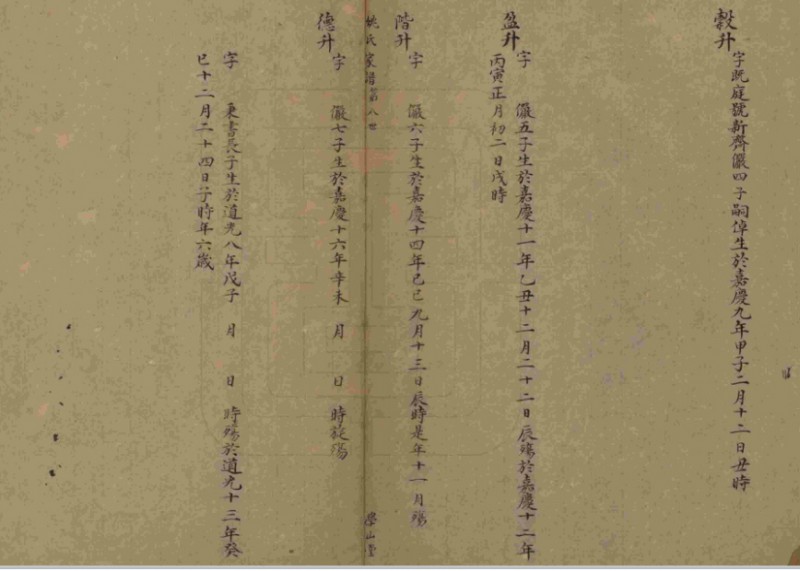 穀升
字旣庭號新齊儼四子嗣倬生於嘉慶九年甲子二月十二日丑時
盈升
字 儼五子生於嘉慶十一年乙丑十二月二十二日辰殤於嘉慶十二年
丙寅正月初二日戌時
階升
字 儼六子生於嘉慶十四年己巳九月十三日辰時是年十一月殤
姚氏家譜第八世 學山堂
德升
字 儼七子生於嘉慶十六年辛未 月 日 時旋殤
字 東書長子生於道光八年戊子 月 日 時殤於道光十三年癸
巳十二月二十四日子時年六歲